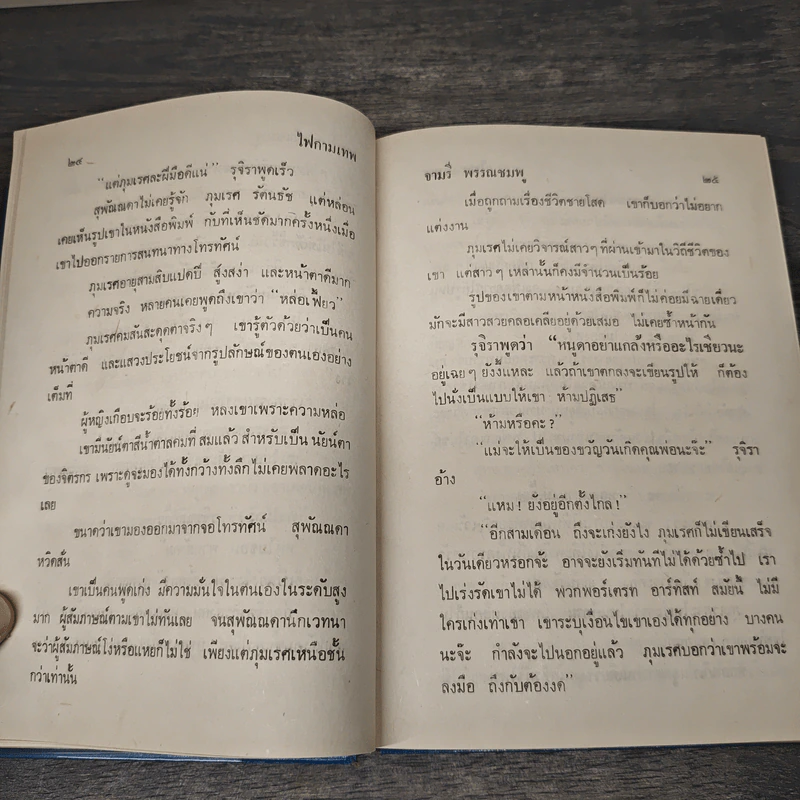 ๒๔
ไฟกามเทพ
“แต่ภุมเรศละฝีมือดีแน่” รุจิราพูดเร็ว
สุพัณณดาไม่เคยรู้จัก ภุมเรศ รัตนธัช แต่หล่อน
เคยเห็นรูปเขาในหนังสือพิมพ์ กับที่เห็นชัดมากครั้งหนึ่งเมื่อ
เขาไปออกรายการสนทนาทางโทรทัศน์
ภุมเรศอายุสามสิบแปดปี สูงสง่า และหน้าตาดีมาก
ความจริง หลายคนเคยพูดถึงเขาว่า “หล่อเฟี้ยว”
ภุมเรศคมสันสะดุดตาจริงๆ เขารู้ตัวด้วยว่าเป็นคน
หน้าตาดี และแสวงประโยชน์จากรูปลักษณ์ของตนเองอย่าง
เต็มที่
ผู้หญิงเกือบจะร้อยทั้งร้อย หลงเขาเพราะความหล่อ
เขามีนัยน์ตาสีน้ำตาลคมที่ สมแล้ว สำหรับเป็น นัยน์ตา
ของจิตรกร เพราะดูจะมองได้ทั้งกว้างทั้งลึก ไม่เคยพลาดอะไร
เลย
ขนาดว่าเขามองออกมาจากจอโทรทัศน์ สุพัณณดา
หวิดสั่น
เขาเป็นคนพูดเก่ง มีความมั่นใจในตนเองในระดับสูง
มาก ผู้สัมภาษณ์ตามเขาไม่ทันเลย จนสุพัณณดานึกเวทนา
จะว่าผู้สัมภาษณ์โง่หรือแหยก็ไม่ใช่ เพียงแต่ภุมเรศเหนือชั้น
กว่าเท่านั้น
จามรี พรรณชมพู
๒๕
เมื่อถูกถามเรื่องชีวิตชายโสด เขาก็บอกว่าไม่อยาก
แต่งงาน
ภุมเรศไม่เคยวิจารณ์สาวๆ ที่ผ่านเข้ามาในวิถีชีวิตของ
เขา แต่สาวๆ เหล่านั้นก็คงมีจำนวนเป็นร้อย
รูปของเขาตามหน้าหนังสือพิมพ์ก็ไม่ค่อยมีฉายเดี่ยว
มักจะมีสาวสวยคลอเคลียอยู่ด้วยเสมอ ไม่เคยซ้ำหน้ากัน
รุจิราพูดว่า “หนูดาอย่าแกล้งหรืออะไรเชียวนะ
อยู่เฉยๆ ยังงี้แหละ แล้วถ้าเขาตกลงจะเขียนรูปให้ ก็ต้อง
ไปนั่งเป็นแบบให้เขา ห้ามปฏิเสธ”
“ห้ามหรือคะ?”
“แม่จะให้เป็นของขวัญวันเกิดคุณพ่อนะจ๊ะ” รุจิรา
อ้าง
“แหม! ยังอยู่อีกตั้งไกล!”
“อีกสามเดือน ถึงจะเก่งยังไง ภุมเรศก็ไม่เขียนเสร็จ
ในวันเดียวหรอกจ้ะ อาจจะยังเริ่มทันทีไม่ได้ด้วยซ้ำไป เรา
ไปเร่งรัดเขาไม่ได้ พวกพอร์เตรท อาร์ทิสท์ สมัยนี้ ไม่มี
ใครเก่งเท่าเขา เขาระบุเงื่อนไขเขาเองได้ทุกอย่าง บางคน
นะจ๊ะ กำลังจะไปนอกอยู่แล้ว ภุมเรศบอกว่าเขาพร้อมจะ
ลงมือ ถึงกับต้องงด”